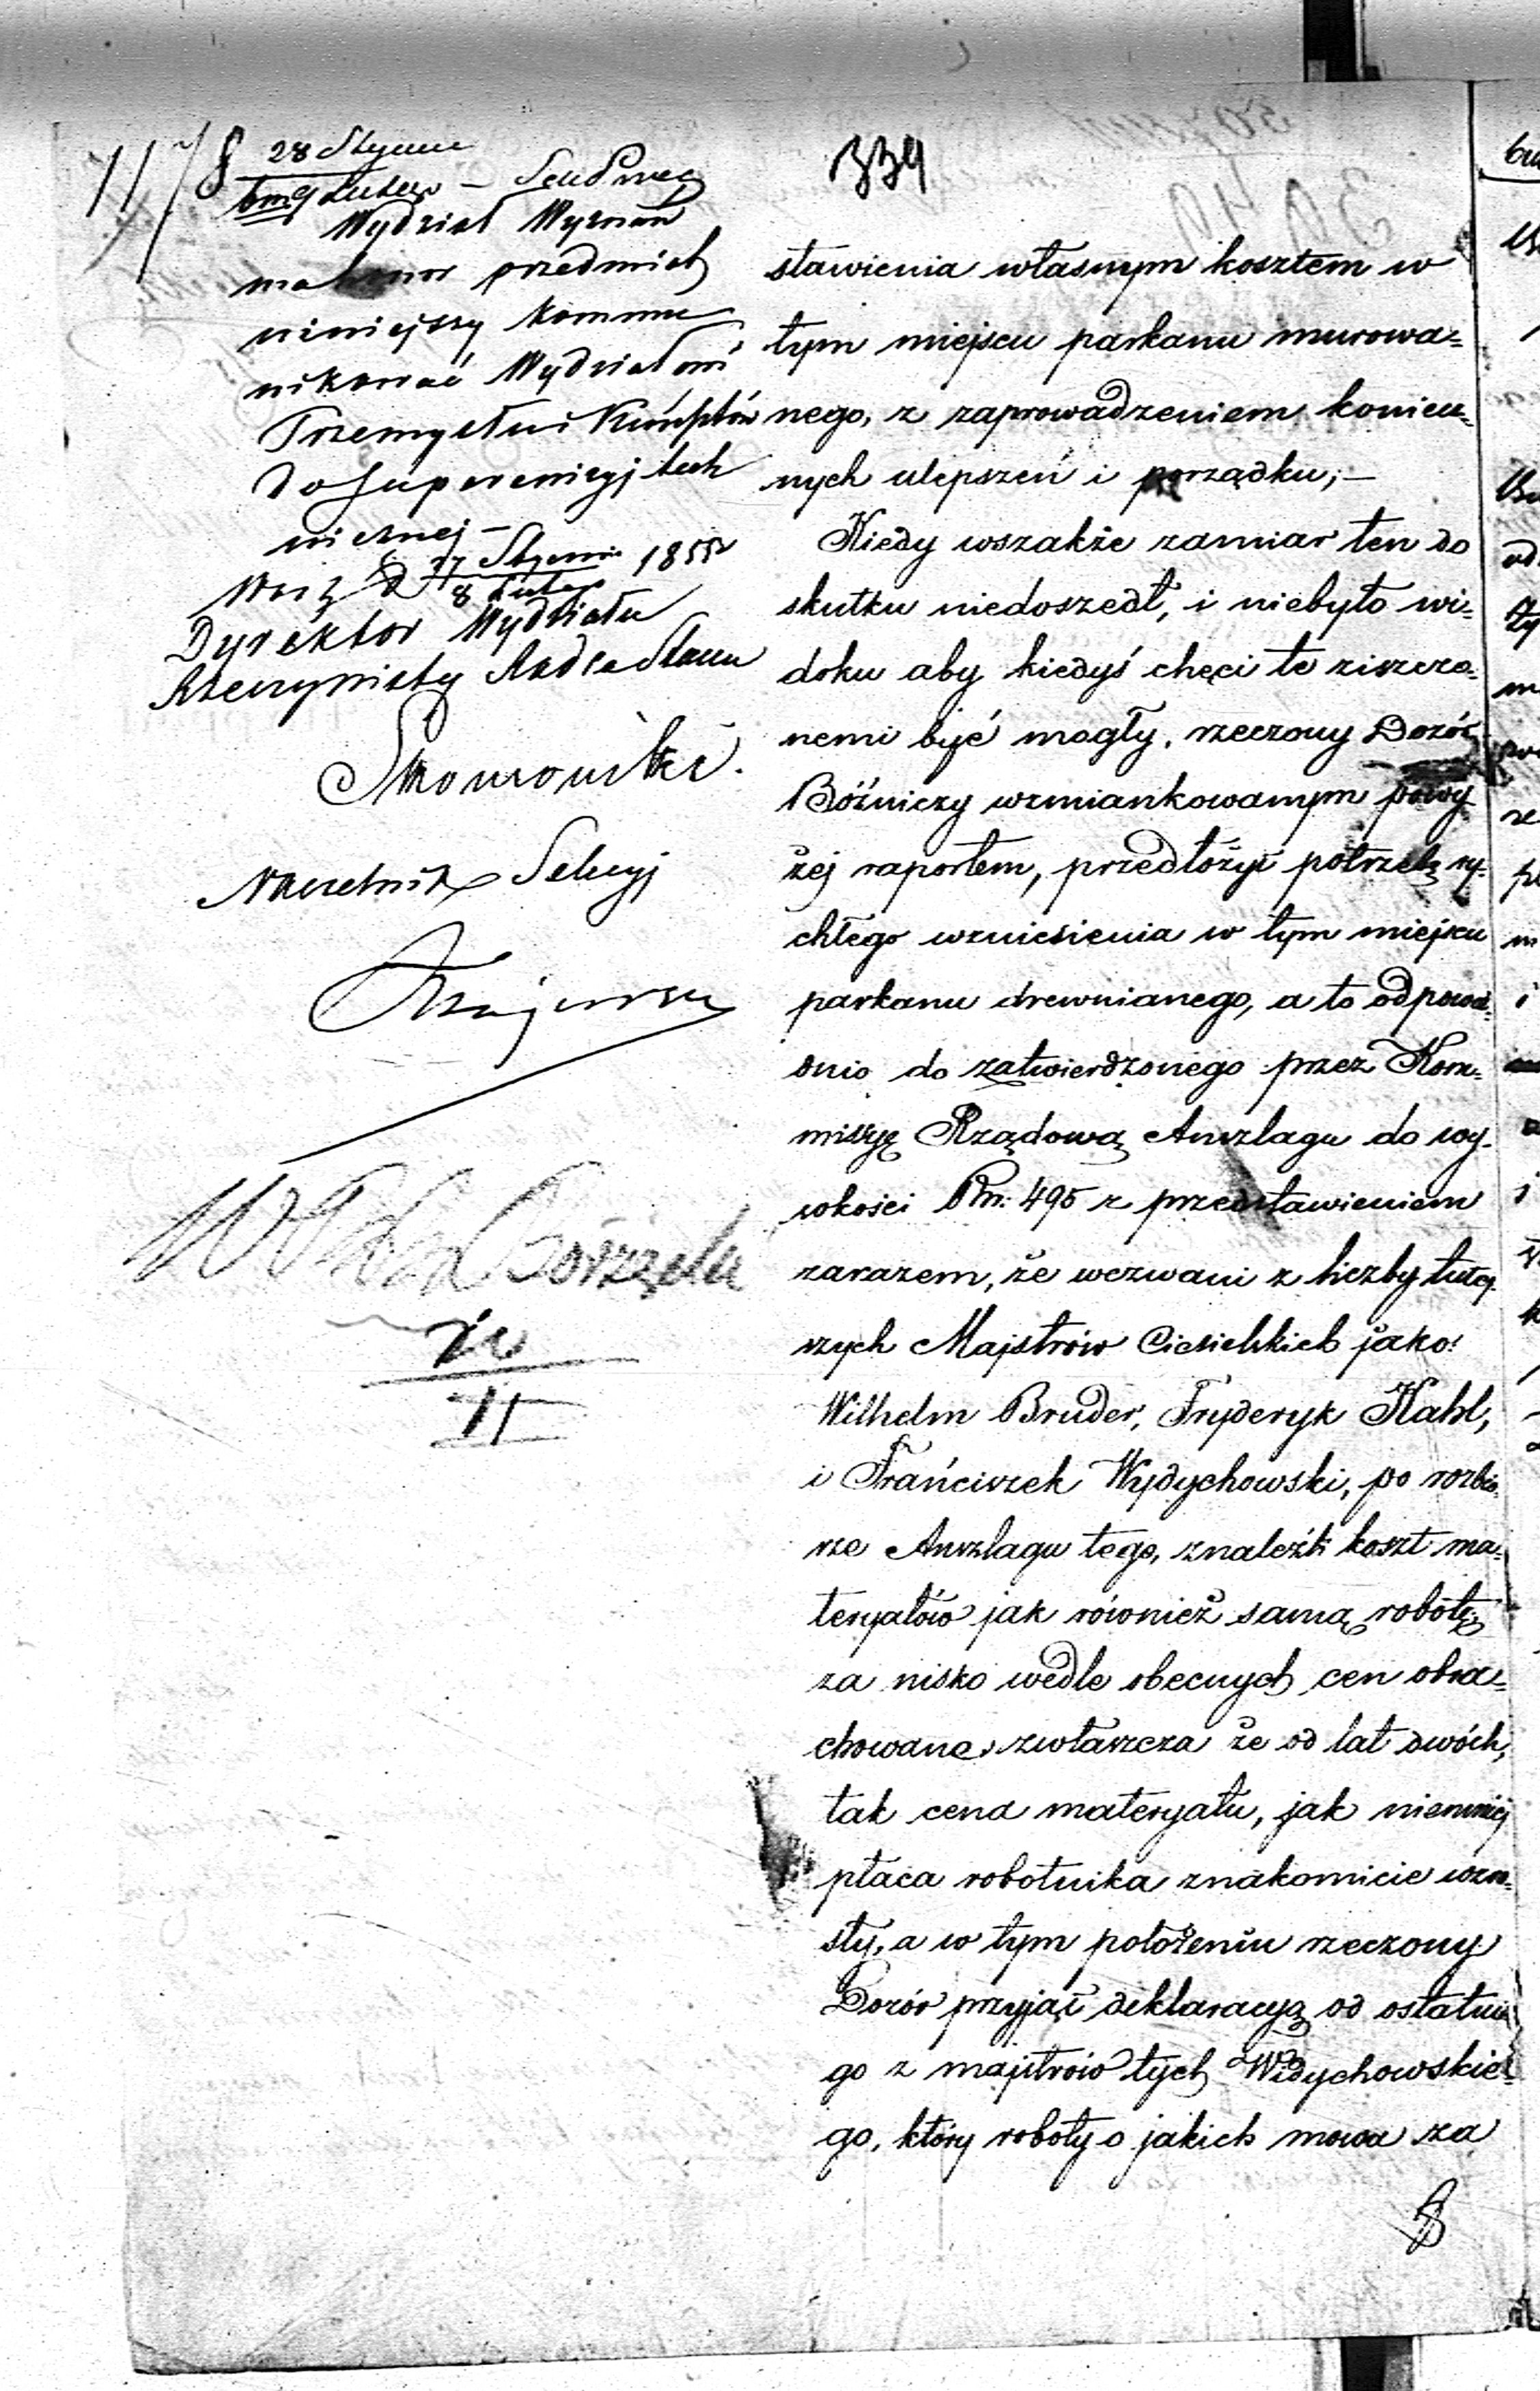 334
1178
28 Stycznia
9 Lutego
Wydział Wyznań
ma honor przedmiot
niniejszy kommu
nikować Wydziałowi
Przemysłu i Kunsztów
do superewizyj tech
nicznej –
8 Lutego
Dyrektor Wydziału
Rzeczywisty Radca Stanu
Naczelnik Sekcyj
stawienia własnym kosztem w
tym miejscu parkanu murowa=
nego, z zaprowadzeniem koniecz=
nych ulepszeń i porządku; –
Kiedy wszakże zamiar ten do
skutku niedoszedł, i niebyło wi=
doku aby kiedyś chęci te ziszczo=
nemi być mogły, rzeczony Dozór
Bóźniczy wzmiankowanym powy
żej raportem, przedłożył potrzebę ry=
chłego wzniesienia w tym miejscu
parkanu drewnianego, a to odpowie=
dnio do zatwierdzonego przez Kom=
missyę Rządową Anszlagu do wy=
sokości Rsr: 495 z przedstawieniem
zarazem, że wezwani z liczby tutej=
szych Majstrów Ciesielskich jako:
Wilhelm Bruder, Fryderyk Kahl,
i Frańciszek Wydychowski, po rozbio=
rze Anszlagu tego, znaleźli koszt ma=
teryałów jak również samą robotę
za nisko wedle obecnych cen obra=
chowane, zwłaszcza że od lat dwóch,
tak cena materyału, jak niemniej
płaca robotnika znakomicie wzro=
sły, a w tym położeniu rzeczony
Dozór przyjął deklaracyą od ostatnie
go z majstrów tych Widychowskie=
go, który roboty o jakich mowa za